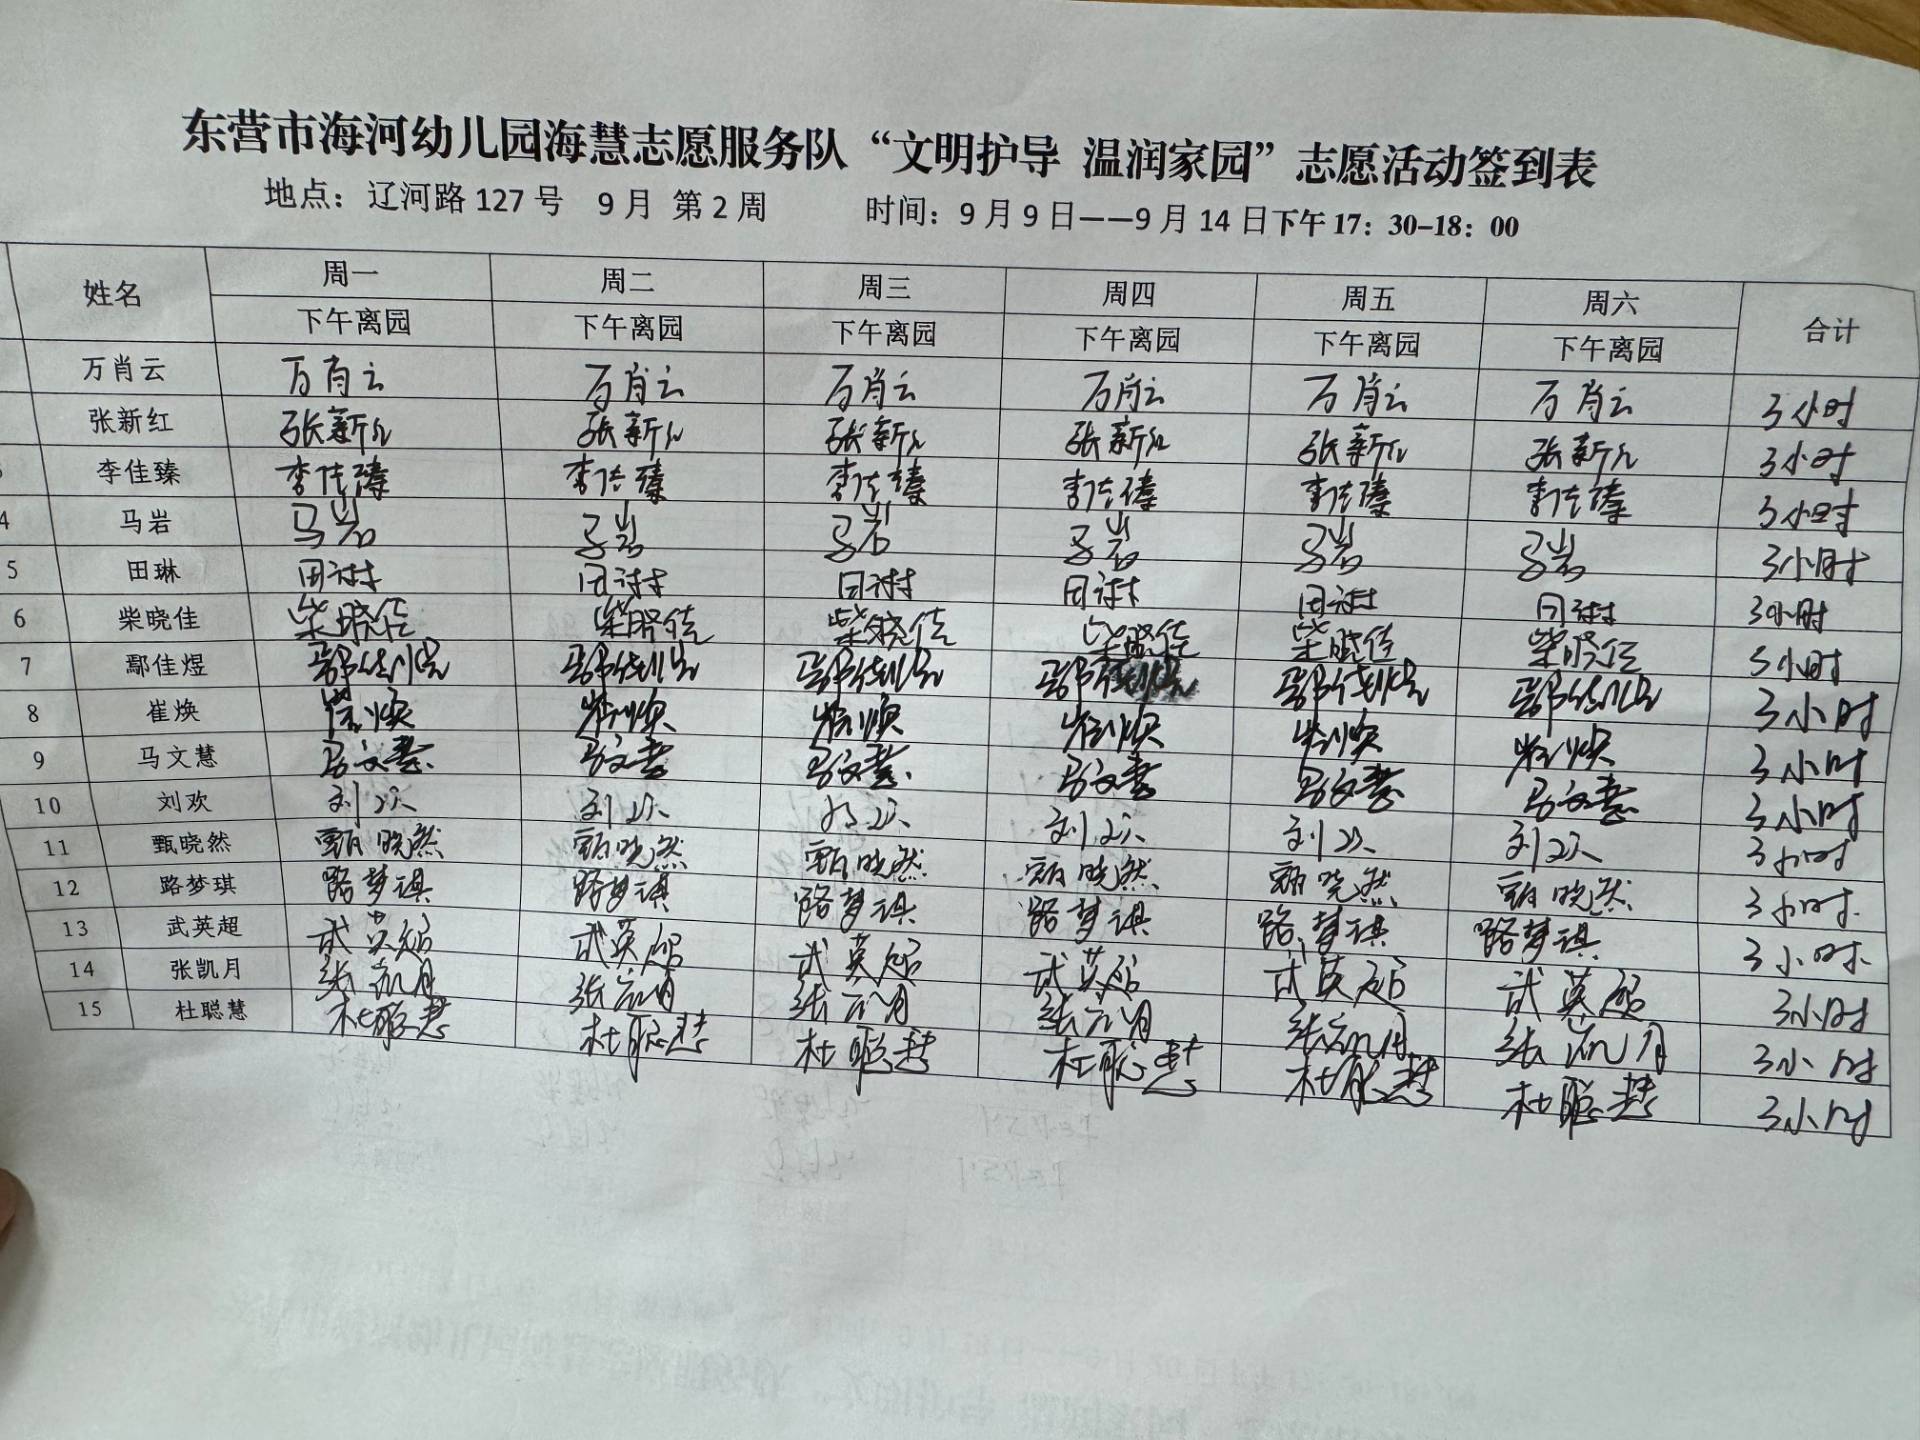 东营市海河幼儿园海慧志愿服务队“文明护导 温润家园”志愿活动签到表
地点：辽河路 127 号 9 月 第 2 周 时间：9 月 9 日——9 月 14 日下午 17：30-18：00
姓名 周一 周二 周三 周四 周五 周六 合计
下午离园 下午离园 下午离园 下午离园 下午离园 下午离园
万肖云 万肖云 万肖云 万肖云 万肖云 万肖云 万肖云 3小时
张新红 张新红 张新红 张新红 张新红 张新红 张新红 3小时
李佳臻 李佳臻 李佳臻 李佳臻 李佳臻 李佳臻 李佳臻 3小时
4 马岩 马岩 马岩 马岩 马岩 马岩 马岩 3小时
5 田琳 田琳 田琳 田琳 田琳 田琳 田琳 3小时
6 柴晓佳 柴晓佳 柴晓佳 柴晓佳 柴晓佳 柴晓佳 柴晓佳 3小时
7 鄢佳煜 鄢佳煜 鄢佳煜 鄢佳煜 鄢佳煜 鄢佳煜 鄢佳煜 3小时
8 崔焕 崔焕 崔焕 崔焕 崔焕 崔焕 崔焕 3小时
9 马文慧 马文慧 马文慧 马文慧 马文慧 马文慧 马文慧 3小时
10 刘欢 刘欢 刘欢 刘欢 刘欢 刘欢 刘欢 3小时
11 甄晓然 甄晓然 甄晓然 甄晓然 甄晓然 甄晓然 甄晓然 3小时
12 路梦琪 路梦琪 路梦琪 路梦琪 路梦琪 路梦琪 路梦琪 3小时
13 武英超 武英超 武英超 武英超 武英超 武英超 武英超 3小时
14 张凯月 张凯月 张凯月 张凯月 张凯月 张凯月 张凯月 3小时
15 杜聪慧 杜聪慧 杜聪慧 杜聪慧 杜聪慧 杜聪慧 杜聪慧 3小时